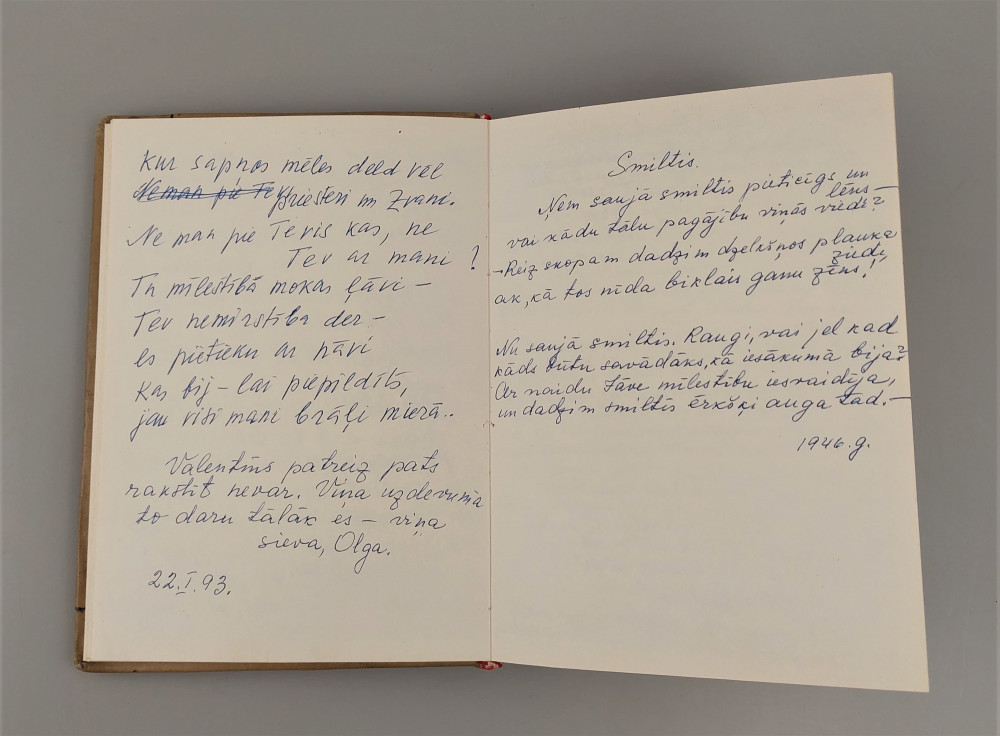 Kur sapnos mēles deld vēl
Neman pie Te Priesteri un Zvani.
Ne man pie Tevis kas, ne
Tev ar mani ?
Tu mīlestībā mokas ļāvi –
Tev nemirstība der –
es pietieku ar nāvi
Kas bij – lai piepildīts,
jau visi mani brāļi mierā..
Valentīns patreiz pats
rakstīt nevar. Viņa uzdevumā
to daru tālāk es – viņa
sieva, Olga.
22.I.93.
Smiltis.
Ņem saujā smiltis pieticīgs un
lēns –
vai kādu tālu pagājību viņās viedi?
– Reiz skopam dadzim dzelkšņos plauka
ziedi,
ak, kā tos nīda biklais ganu zēns!
Nu saujā smiltis. Raugi, vai jel kad
kāds būtu savādāks, kā iesākumā bija?
Ar naidu tāve mīlestību iesvaidīja,
un dadzim smiltīs ērkšķi auga tad. –
1946.g.